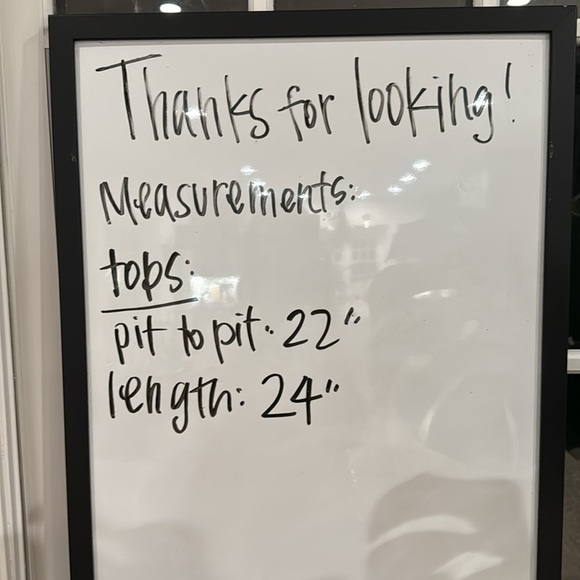 Thanks for looking!
Measurements:
tops:
pit to pit: 22"
length: 24"